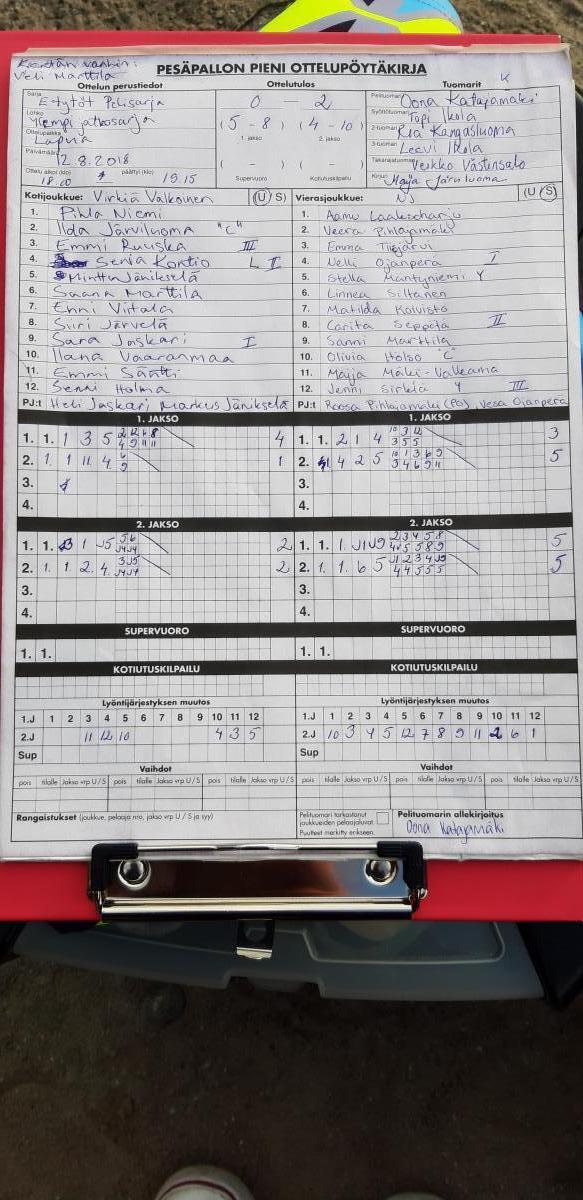 Kentän vanhin:
Veli Marttila
PESÄPALLON PIENI OTTELUPÖYTÄKIRJA
K
Ottelun perustiedot
Sarja E-tytöt Pelisarja
Lohko Ylempi jatkosarja
Ottelupaikka Lapua
Päivämäärä 12.8.2018
Ottelu alkoi (klo) 18.00 päättyi (klo) 19.15
Ottelutulos
0 - 2
(5 - 8) (4 - 10)
1. jakso 2. jakso
( - ) ( - )
Supervuoro Kotiutuskilpailu
Tuomarit
Pelituomari Oona Katajamäki
Syöttötuomari Topi Ikola
2-tuomari Ria Kangasluoma
3-tuomari Leevi Ikola
Takarajatuomari Veikko Västensalo
Kirjuri Maija Järviluoma
Kotijoukkue: Virkiä Valkoinen (U S)
1. Pihla Niemi
2. Ilda Järviluoma "C"
3. Emmi Ruuska III
4. Senja Kontio L II
5. Minttu Jänikselä
6. Saana Marttila
7. Enni Virtala
8. Siiri Järvelä
9. Sara Jaskari I
10. Ilana Vaaranmaa
11. Emmi Säntti
12. Senni Holma
PJ:t Heli Jaskari Markus Jänikselä
Vierasjoukkue: NJ (U S)
1. Aamu Laaksoharju
2. Veera Pihlajamäki
3. Emma Tiisjärvi
4. Nelli Ojanperä I
5. Stella Mäntyniemi Y
6. Linnea Siltanen
7. Matilda Koivisto
8. Carita Seppälä II
9. Sanni Marttila
10. Olivia Holso "C"
11. Maija Mäki-Valkama
12. Jenni Sirkiä Y III
PJ:t Roosa Pihlajamäki (PJ), Vesa Ojanperä
1. JAKSO
1. 1. 1 3 5 4
2. 1. 1 11 4 1
3.
4.
1. JAKSO
1. 1. 2 1 4 3
2. 4 2 5 5
3.
4.
2. JAKSO
1. 1. 2
2. 1. 1 2 4 2
3.
4.
2. JAKSO
1. 1. 5
2. 1. 1 6 5 5
3.
4.
SUPERVUORO
1. 1.
SUPERVUORO
1. 1.
KOTIUTUSKILPAILU
KOTIUTUSKILPAILU
Lyöntijärjestyksen muutos
1.J 1 2 3 4 5 6 7 8 9 10 11 12
2.J 11 12 10 4 3 5
Sup
Lyöntijärjestyksen muutos
1.J 1 2 3 4 5 6 7 8 9 10 11 12
2.J 10 3 4 5 12 7 8 9 11 2 6 1
Sup
Vaihdot
pois tilalle Jakso vrp U/S pois tilalle Jakso vrp U/S pois tilalle Jakso vrp U/S
Vaihdot
pois tilalle Jakso vrp U/S pois tilalle Jakso vrp U/S pois tilalle Jakso vrp U/S
Rangaistukset (joukkue, pelaaja nro, jakso vrp U / S ja syy)
Pelituomari tarkastanut
joukkueiden pelaajaluvat
Puutteet merkitty erikseen.
Pelituomarin allekirjoitus
Oona Katajamäki